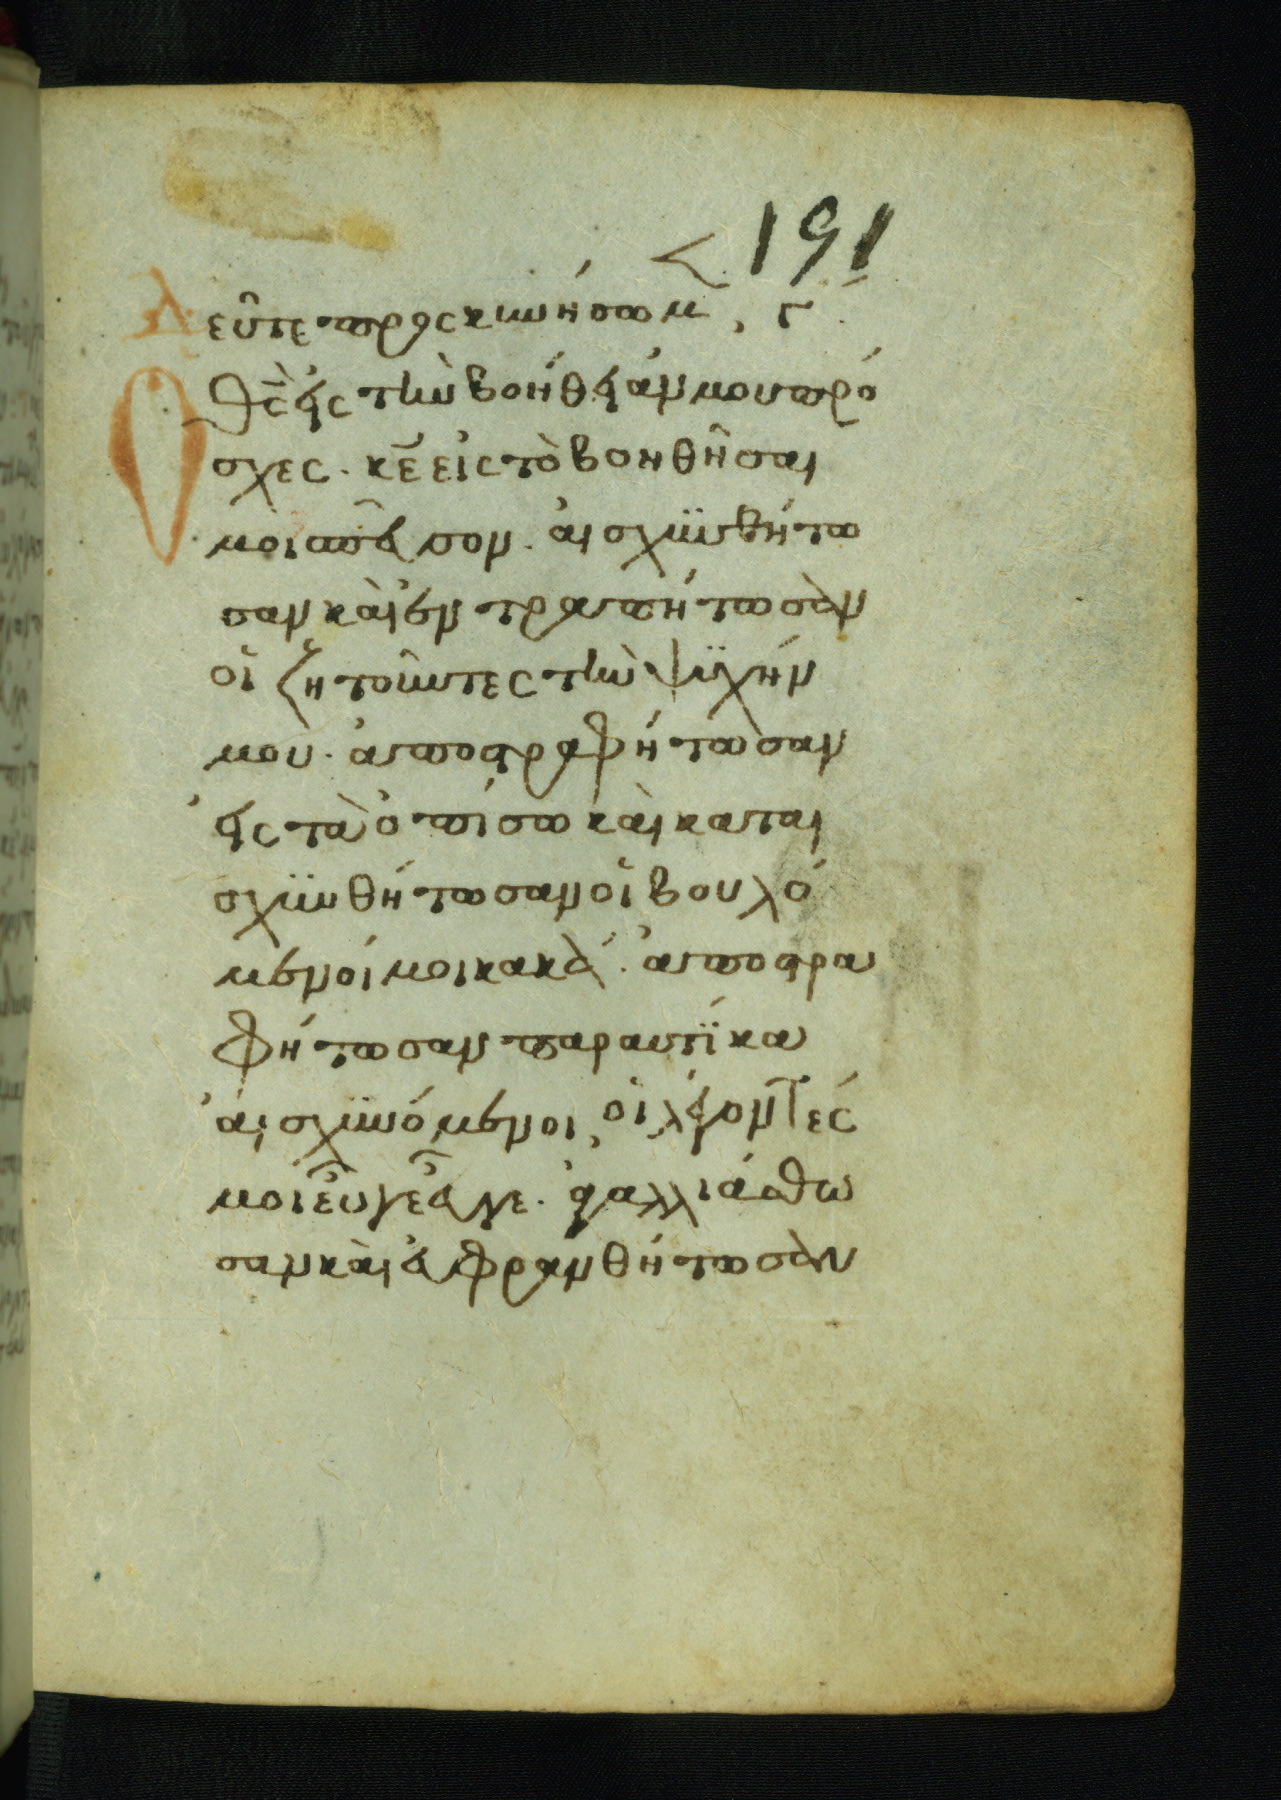 191
Δεῦτε προσκυνήσωμ, γ
Ὁ θς̀ εἰς τὴν βοήθειάν μου πρό
σχες. κε̄ εἰς τὸ βοηθῆσαι
μοι σπεῦσον. αἰσχϋνθήτω
σαν καὶ ἐντραπήτωσὰν
οἱ ζητοῦντες τὴν ψϋχήν
μου. ἀποστραφήτωσαν
εἰς τὰ ὀπίσω καὶ καται
σχϋνθήτωσαν οἱ βουλό
μενοί μοι κακά. ἀποστρα
φήτωσαν παραυτΐκα
αἰσχϋνόμενοι, οἱ λέγοντές
μοι εὖγε εὖγε. ἀγαλλιάσθω
σαν καὶ εὐφρανθήτωσὰν